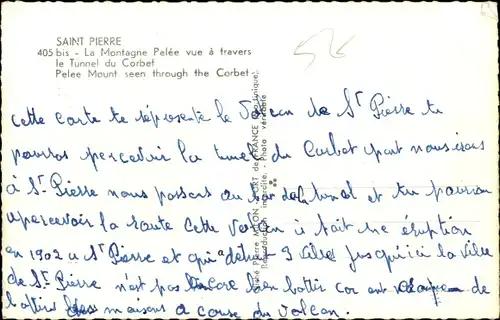 SAINT PIERRE
405 bis - La Montagne Pelée vue à travers
le Tunnel du Corbet
Pelee Mount seen through the Corbet
526
cette carte te représente le Volcan de St Pierre tu
pourras percevoir la tunel du Corbet quant nous irons
à St Pierre nous passons au bor de la tunel et tu pourrau
apercevoir la route Cette Volcan à fait une éruption
en 1902 a St Pierre et qui a détruit 3 villes jusqu'ici la ville
de St Pierre n'est pas encore bien battir car on est de
battire des maisons a couse du Volcan.
Pierre MILON FORT de FRANCE (Martinique)
Reproduction interdite. Photo véritable